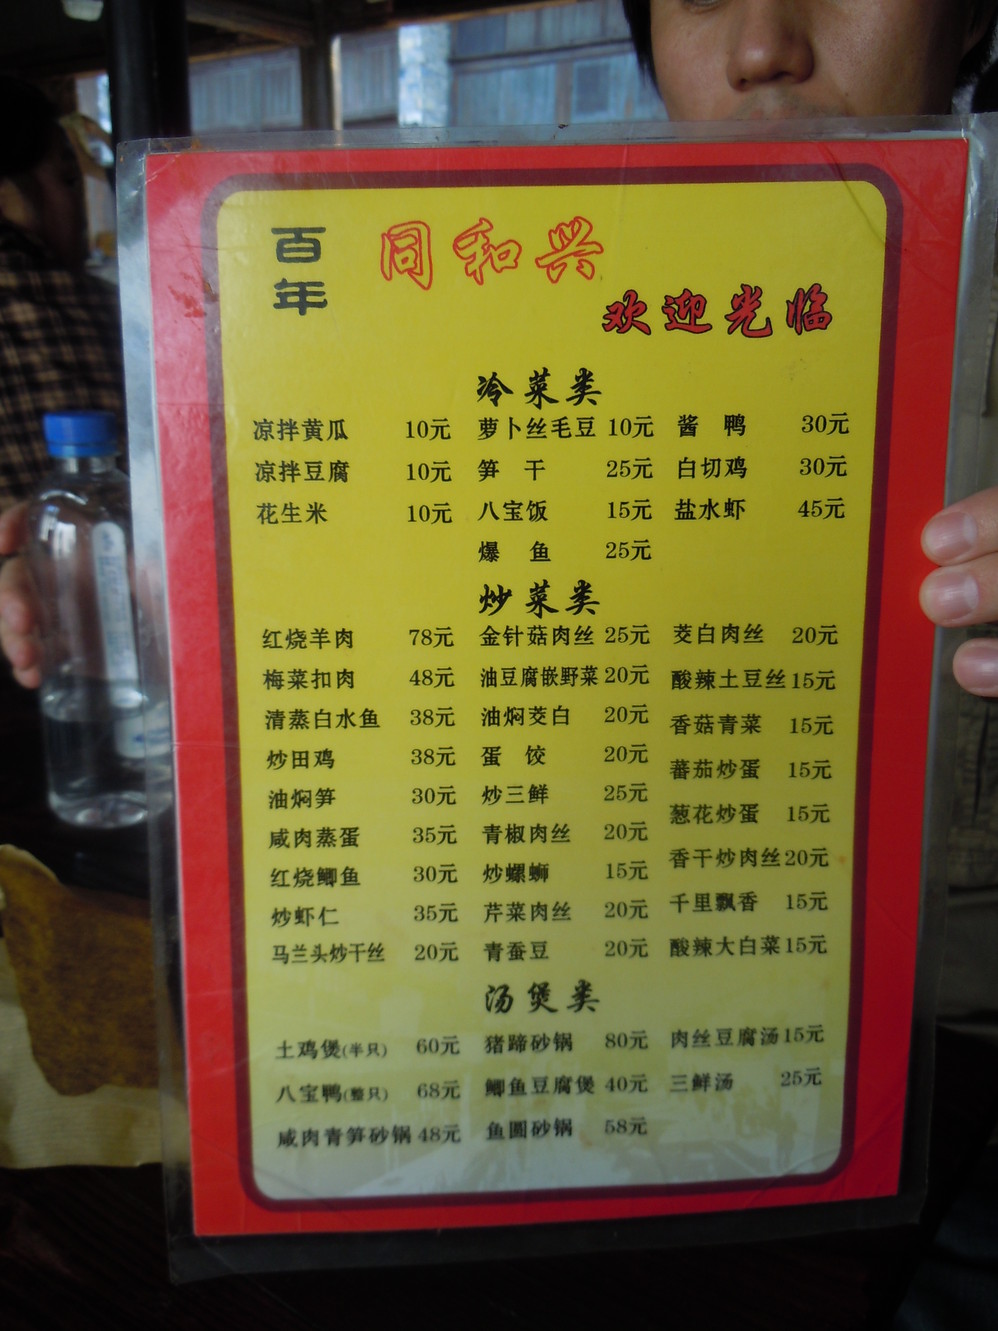 百年
同和兴
欢迎光临
冷菜类
凉拌黄瓜 10元 萝卜丝毛豆 10元 酱鸭 30元
凉拌豆腐 10元 笋干 25元 白切鸡 30元
花生米 10元 八宝饭 15元 盐水虾 45元
爆鱼 25元
炒菜类
红烧羊肉 78元 金针菇肉丝 25元 茭白肉丝 20元
梅菜扣肉 48元 油豆腐嵌野菜 20元 酸辣土豆丝 15元
清蒸白水鱼 38元 油焖茭白 20元 香菇青菜 15元
炒田鸡 38元 蛋饺 20元 蕃茄炒蛋 15元
油焖笋 30元 炒三鲜 25元 葱花炒蛋 15元
咸肉蒸蛋 35元 青椒肉丝 20元 香干炒肉丝 20元
红烧鲫鱼 30元 炒螺蛳 15元 千里飘香 15元
炒虾仁 35元 芹菜肉丝 20元 酸辣大白菜 15元
马兰头炒干丝 20元 青蚕豆 20元
汤煲类
土鸡煲(半只) 60元 猪蹄砂锅 80元 肉丝豆腐汤 15元
八宝鸭(整只) 68元 鲫鱼豆腐煲 40元 三鲜汤 25元
咸肉青笋砂锅 48元 鱼圆砂锅 58元